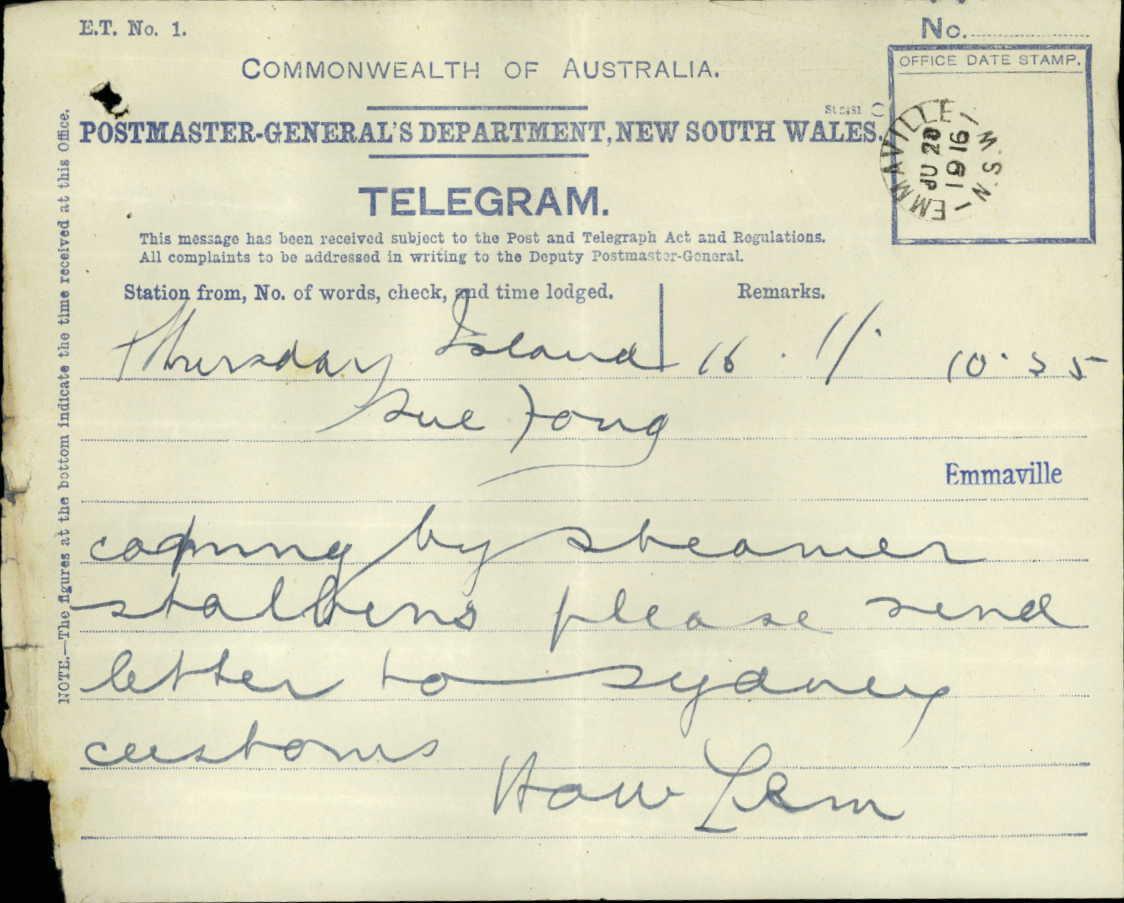 E.T. No. 1.
No.
COMMONWEALTH OF AUSTRALIA.
OFFICE DATE STAMP.
POSTMASTER-GENERAL'S DEPARTMENT, NEW SOUTH WALES.
EMMAVILLE N.S.W.
JU 20
1916
TELEGRAM.
This message has been received subject to the Post and Telegraph Act and Regulations.
All complaints to be addressed in writing to the Deputy Postmaster-General.
Station from, No. of words, check, and time lodged.
Remarks.
Thursday Island 16 . 11. 10.35
Sue Fong
Emmaville
coming by steamer
stalbens please send
letter to sydney
customs
How Lem
NOTE.—The figures at the bottom indicate the time received at this Office.